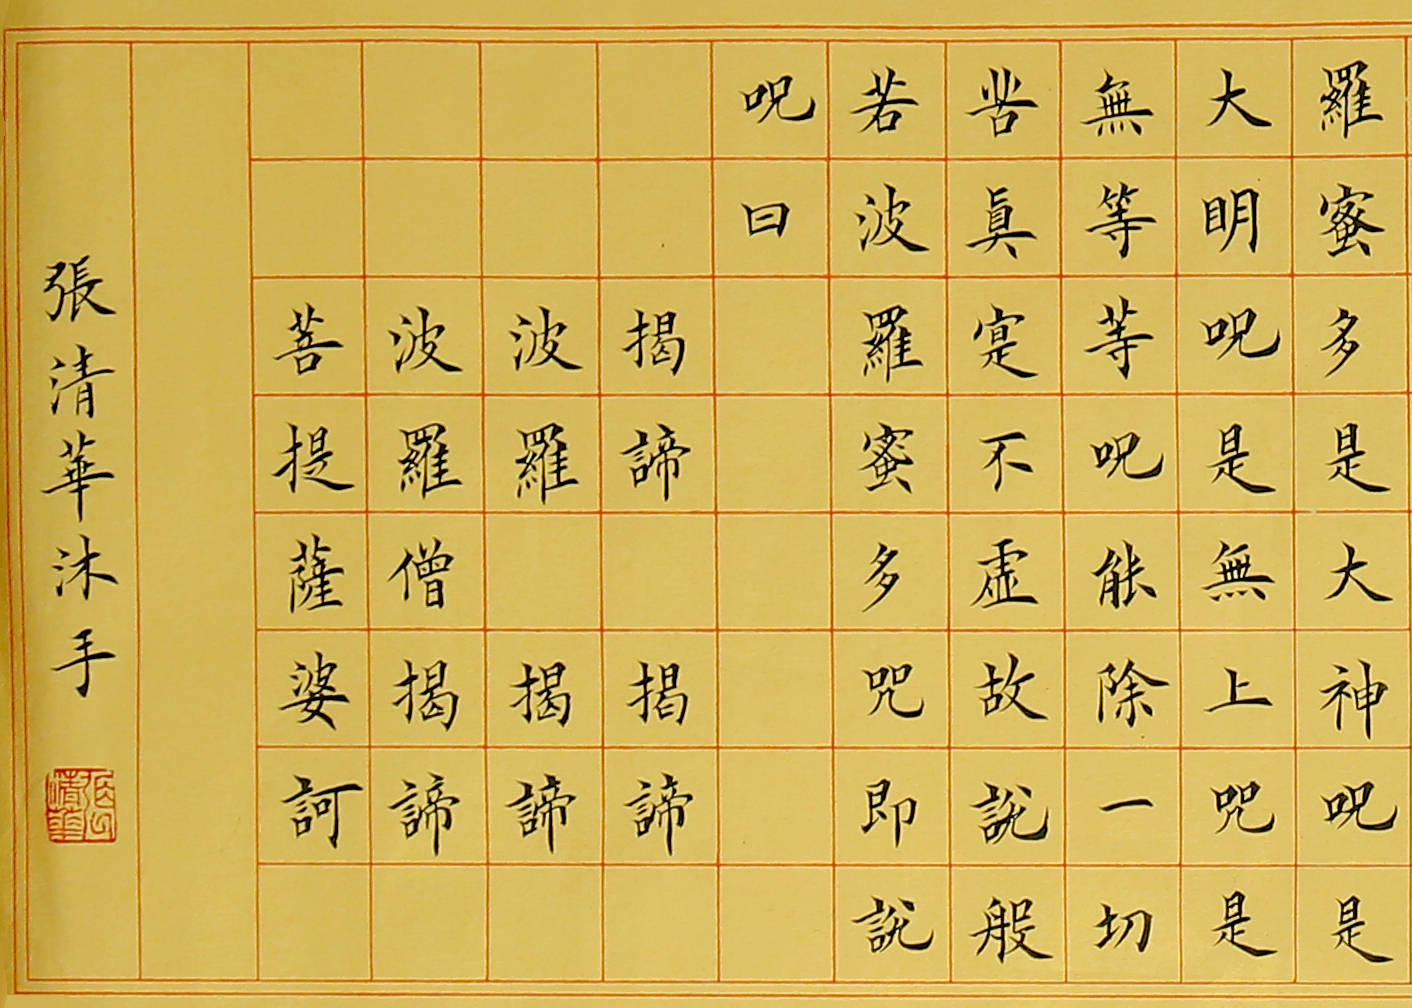 羅蜜多是大神呪是
大明呪是無上咒是
無等等呪能除一切
苦眞寔不虛故說般
若波羅蜜多咒即說
呪曰
揭諦 揭諦
波羅 揭諦
波羅僧揭諦
菩提薩婆訶
張清華沐手
張清華